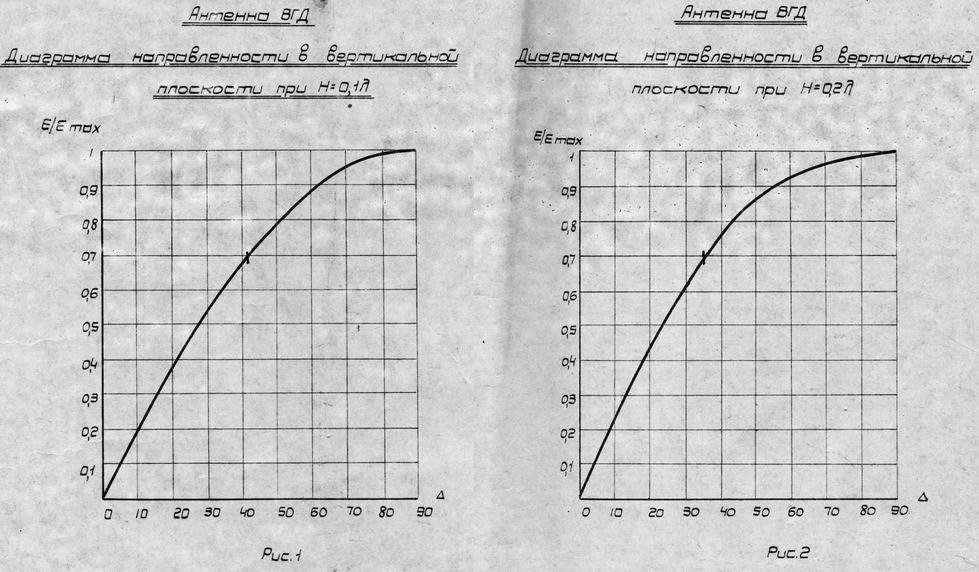 Антенна ВГД
Диаграмма направленности в вертикальной
плоскости при H=0,1λ
E/E max
1
0,9
0,8
0,7
0,6
0,5
0,4
0,3
0,2
0,1
0 10 20 30 40 50 60 70 80 90 Δ
Рис.1
Антенна ВГД
Диаграмма направленности в вертикальной
плоскости при H=0,2λ
E/E max
1
0,9
0,8
0,7
0,6
0,5
0,4
0,3
0,2
0,1
0 10 20 30 40 50 60 70 80 90 Δ
Рис.2